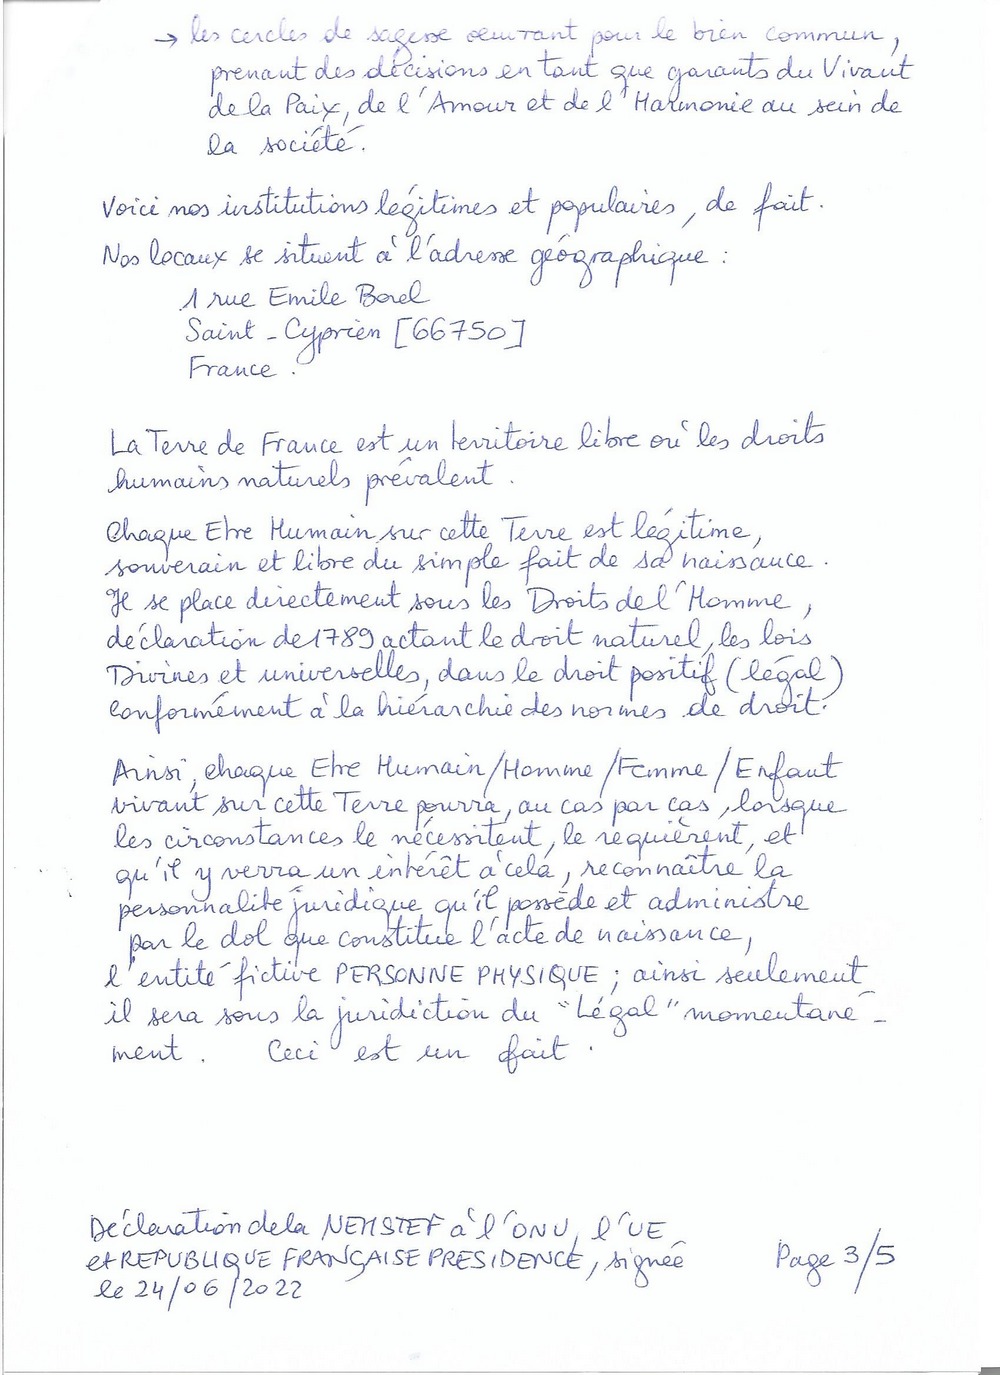 → les cercles de sagesse oeuvrant pour le bien commun,
prenant des décisions en tant que garants du Vivant
de la Paix, de l'Amour et de l'Harmonie au sein de
la société.
Voici nos institutions légitimes et populaires, de fait.
Nos locaux se situent à l'adresse géographique :
1 rue Emile Borel
Saint-Cyprien [66750]
France.
La Terre de France est un territoire libre où les droits
humains naturels prévalent.
Chaque Etre Humain sur cette Terre est légitime,
souverain et libre du simple fait de sa naissance.
Il se place directement sous les Droits de l'Homme,
déclaration de 1789 actant le droit naturel, les lois
Divines et universelles, dans le droit positif (légal)
conformément à la hiérarchie des normes de droit.
Ainsi, chaque Etre Humain/Homme/Femme/Enfant
vivant sur cette Terre pourra, au cas par cas, lorsque
les circonstances le nécessitent, le requièrent, et
qu'il y verra un intérêt à cela, reconnaître la
personnalité juridique qu'il possède et administre
par le dol que constitue l'acte de naissance,
l'entité fictive PERSONNE PHYSIQUE ; ainsi seulement
il sera sous la juridiction du "Légal" momentané-
ment. Ceci est un fait.
Déclaration de la NEMSTEF à l'ONU, l'UE
et REPUBLIQUE FRANÇAISE PRESIDENCE, signée
le 24/06/2022
Page 3/5